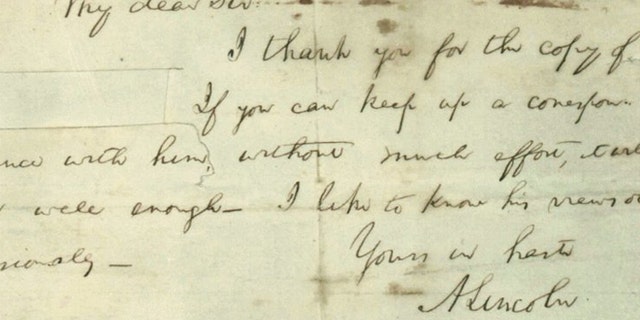 My dear Sir:
I thank you for the copy of
If you can keep up a correspon-
nce with him, without much effort, it wil
well enough— I like to know his views
sionaly—
Yours in haste
A Lincoln